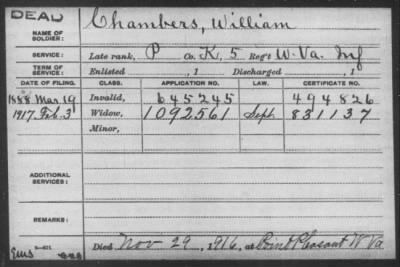 DEAD
NAME OF SOLDIER: Chambers, William
SERVICE: Late rank, P Co. K, 5 Reg't W. Va. Inf
TERM OF SERVICE: Enlisted , 1 Discharged , 1
DATE OF FILING. CLASS. APPLICATION NO. LAW. CERTIFICATE NO.
1888 Mar 19 Invalid, 645245 494826
1917. Feb. 3 Widow, 1092561 Sept. 831137
Minor,
ADDITIONAL SERVICES:
REMARKS:
Died Nov 29, 1916, at Point Pleasant W Va